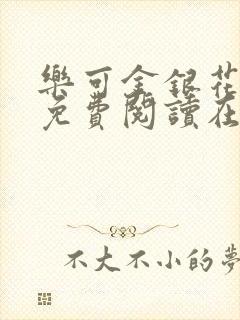 樂可金銀花
免費閱讀在
不大不小的夢